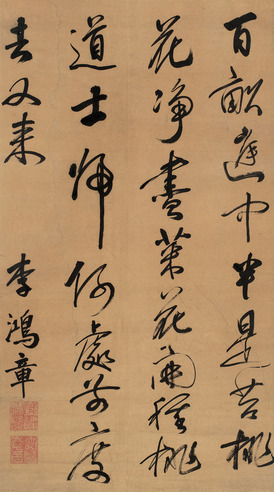 百畝庭中半是苔桃
花淨盡菜花開種桃
道士歸何處前度
去又來
李鴻章